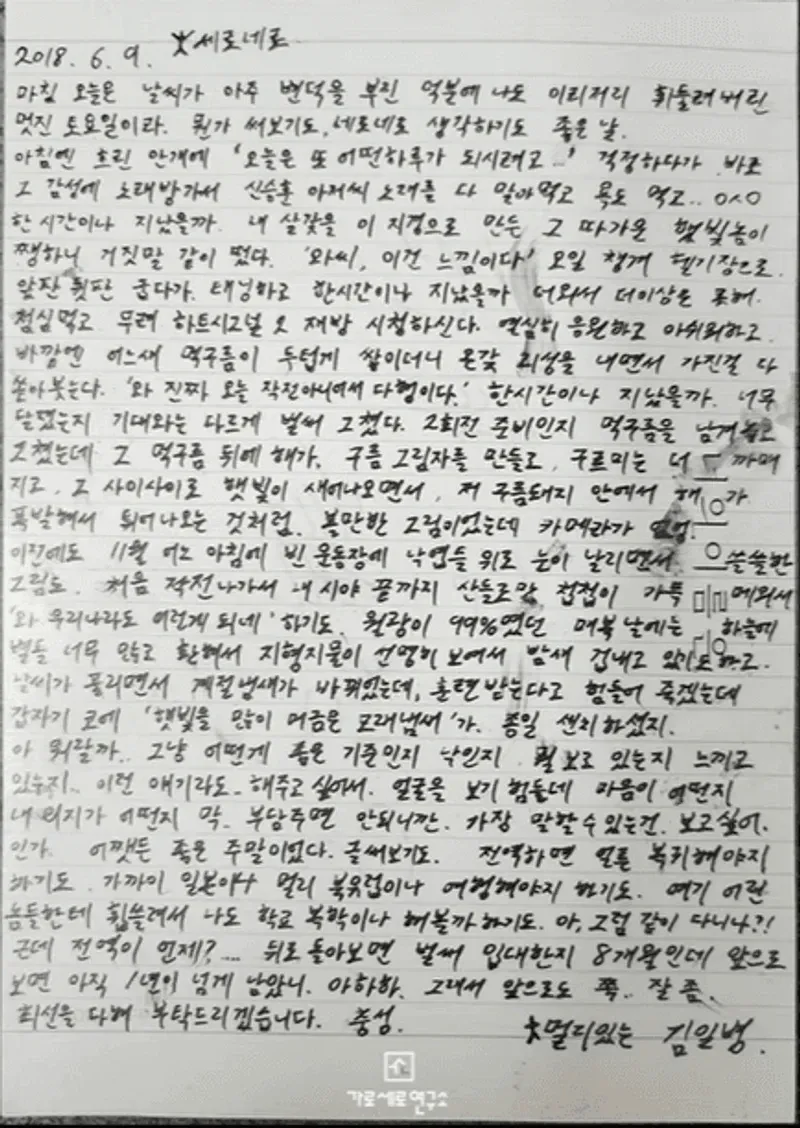 2018. 6. 9. 세로네로
마침 오늘은 날씨가 아주 변덕을 부린 덕분에 나도 이리저리 휘둘려버린
멋진 토요일이라. 뭔가 써보기도, 네로네로 생각하기도 좋은 날.
아침엔 흐린 안개에 '오늘은 또 어떤하루가 되시려고..' 걱정하다가 바로
그 감성에 노래방가서 신승훈 아저씨 노래를 다 말아먹고 욕도 먹고.. ㅇㅅㅇ
한 시간이나 지났을까. 내 살갗을 이 지경으로 만든 그 따가운 햇빛놈이
쨍하니 거짓말 같이 떴다. '와씨, 이건 느낌이다' 오일 챙겨 헬기장으로.
앞판 뒷판 굽다가. 태닝하고 한시간이나 지났을까 더워서 더이상은 못해.
점심먹고 무려 하트시그널 오 재방 시청하신다. 열심히 응원하고 아쉬워하고.
바깥엔 어느새 먹구름이 두텁게 쌓이더니 온갖 괴성을 내면서 가진걸 다
쏟아붓는다. '와 진짜 오늘 작전아니여서 다행이다.' 한시간이나 지났을까. 너무
달랬는지 기대와는 다르게 벌써 그쳤다. 2회전 준비인지 먹구름을 남겨놓고
그쳤는데 그 먹구름 뒤에 해가. 구름 그림자를 만들고, 구르미는 더 까매
지고. 그 사이사이로 햇빛이 새어나오면서, 저 구름돼지 안에서 해 가
폭발해서 튀어나오는 것처럼. 볼만한 그림이었는데 카메라가 없엉.
이전에도 11월 어느 아침에 빈 운동장에 낙엽들 위로 눈이 날리면서 쓸쓸한
그림도. 처음 작전나가서 내 시야 끝까지 산들로만 첩첩이 가득 메워져
'와 우리나라도 이렇게 되네' 하기도. 월광이 99%였던 매복 날에는 하늘에
별들 너무 많고 환해서 지형지물이 선명히 보여서 밤새 겁내고 있기도하고.
날씨가 풀리면서 계절냄새가 바뀌었는데, 훈련받는다고 힘들어 죽겠는데
갑자기 코에 '햇빛을 많이 머금은 모래냄새'가. 종일 센치하셨지.
아 뭐랄까.. 그냥 어떤게 좋은 기준인지 낙인지 뭘 보고 있는지 느끼고
있는지.. 이런 얘기라도.. 해주고 싶어서. 얼굴을 보기 힘들데 마음이 어떤지
내 의지가 어떤지 막.. 부담주면 안되니깐. 가장 말할 수 있는건. 보고싶어.
인가. 어쨋든 좋은 주말이었다. 글써보기도. 전역하면 얼른 복귀해야지
하기도. 가까이 일본이나 멀리 북유럽이나 여행해야지 하기도. 여기 어린
놈들한테 휩쓸려서 나도 학교 복학이나 해볼까 하기도. 아, 그럼 같이 다니나?!
근데 전역이 언제?.... 뒤로 돌아보면 벌써 입대한지 8개월인데 앞으로
보면 아직 1년이 넘게 남았니. 아하하. 그래서 앞으로도 쭉.. 잘 좀.
최선을 다해 부탁드리겠습니다. 충성.
멀리있는 김일병.
가로세로연구소